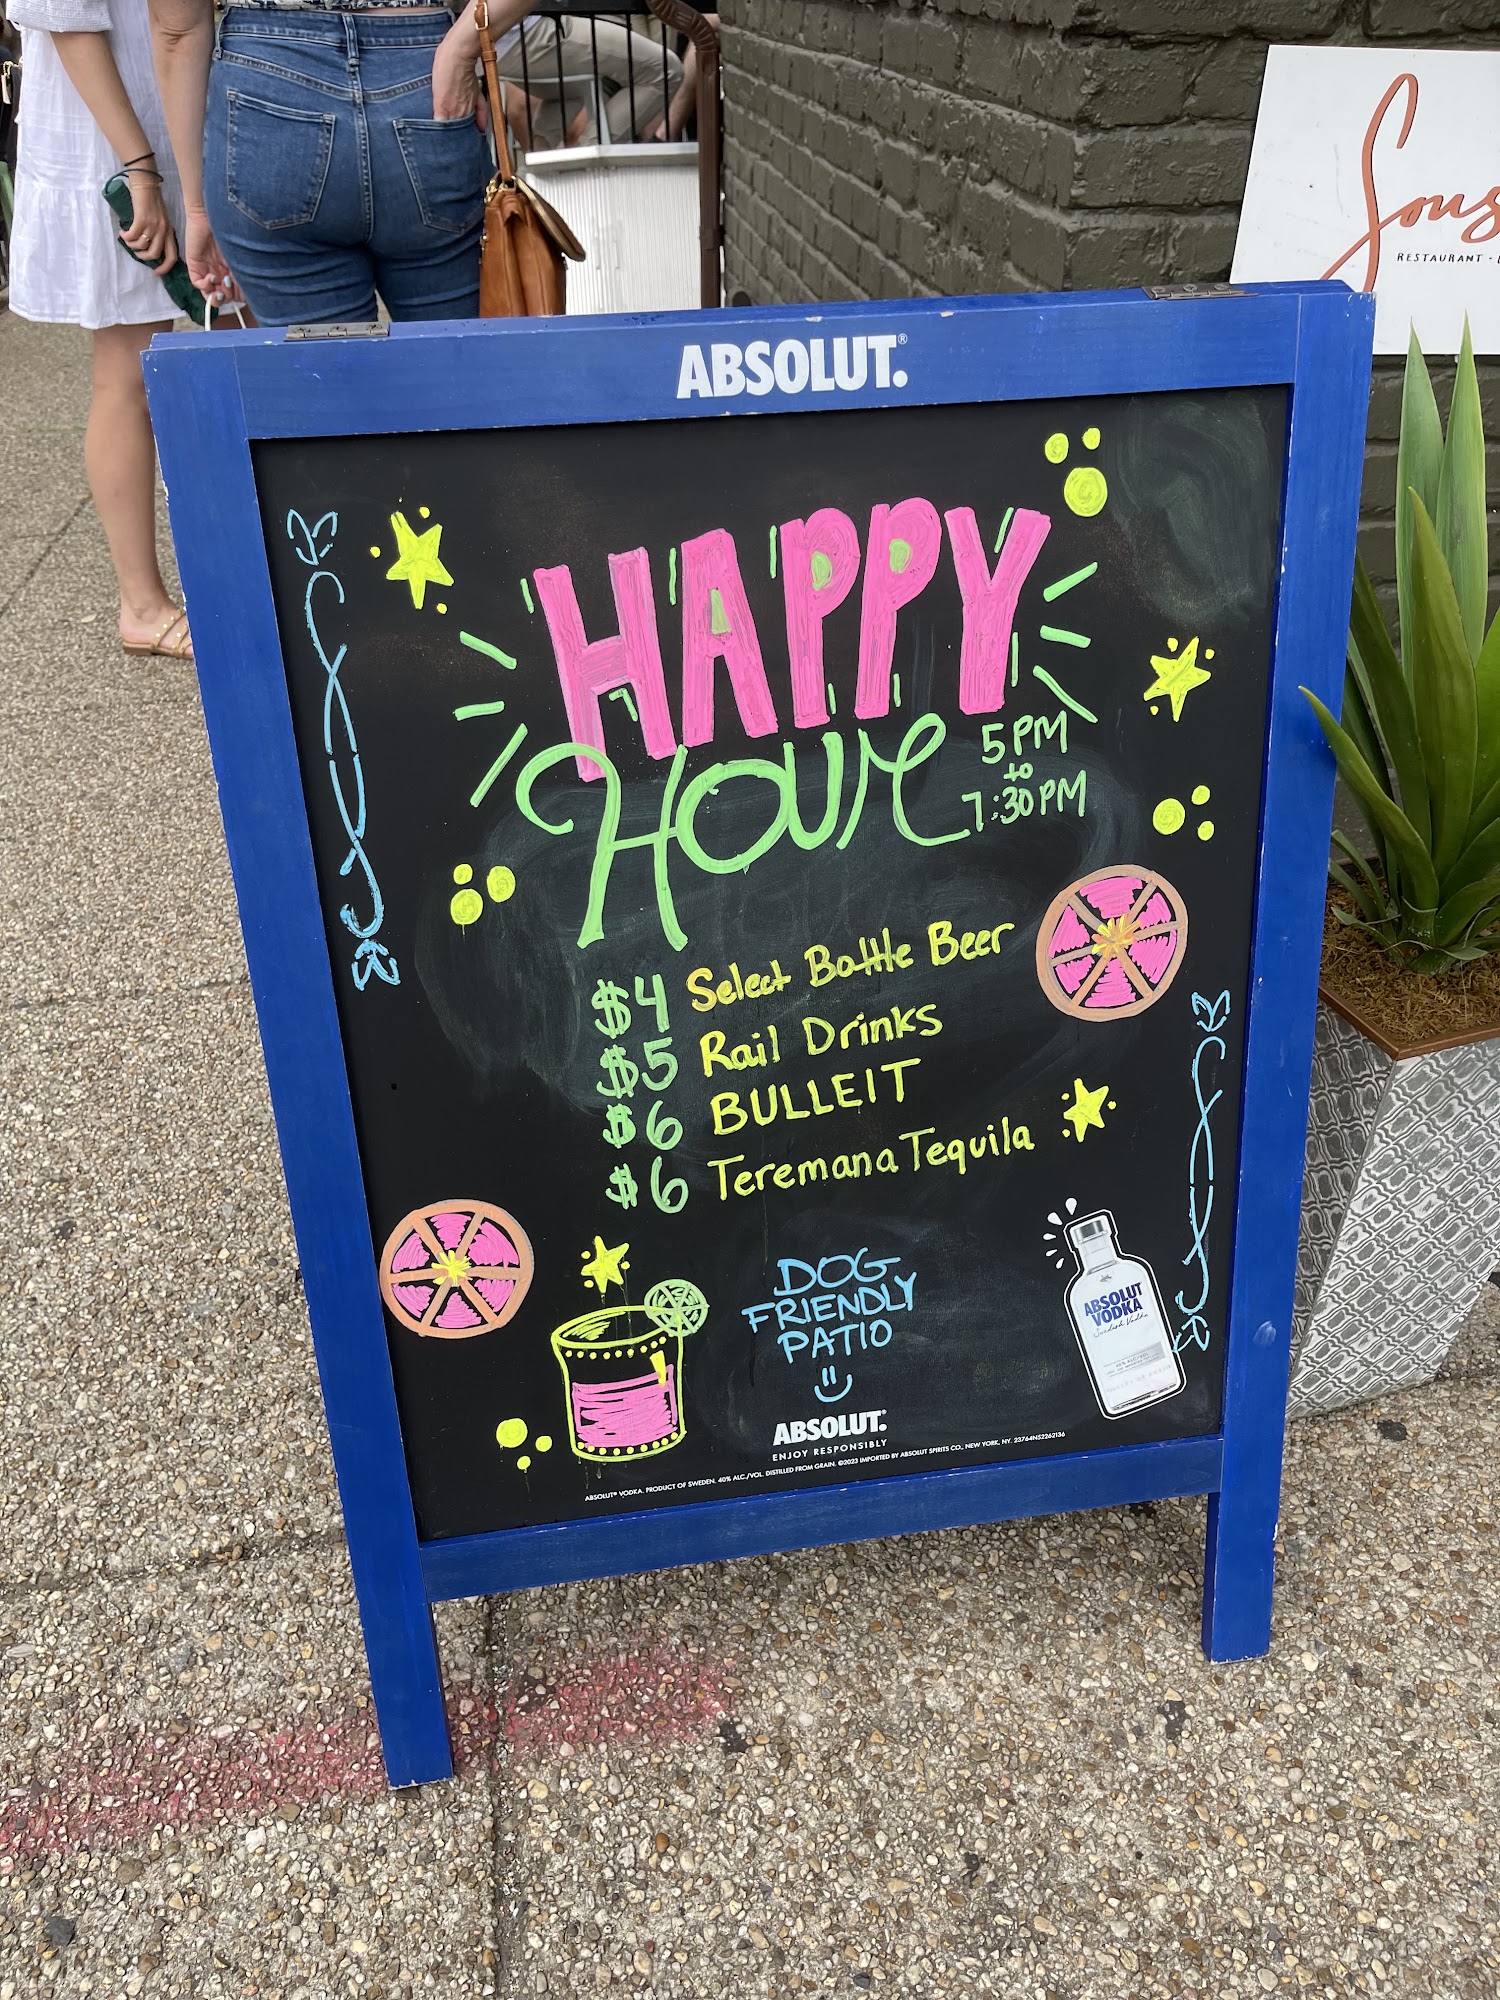 Sous
RESTAURANT
ABSOLUT.®
HAPPY
HOUR
5PM
to
7:30PM
$4 Select Bottle Beer
$5 Rail Drinks
$6 BULLEIT
$6 Teremana Tequila
DOG
FRIENDLY
PATIO
ABSOLUT
VODKA
Swedish Vodka
ABSOLUT.®
ENJOY RESPONSIBLY
ABSOLUT® VODKA. PRODUCT OF SWEDEN. 40% ALC./VOL. DISTILLED FROM GRAIN. ©2023 IMPORTED BY ABSOLUT SPIRITS CO., NEW YORK, NY. 23764NS2262136